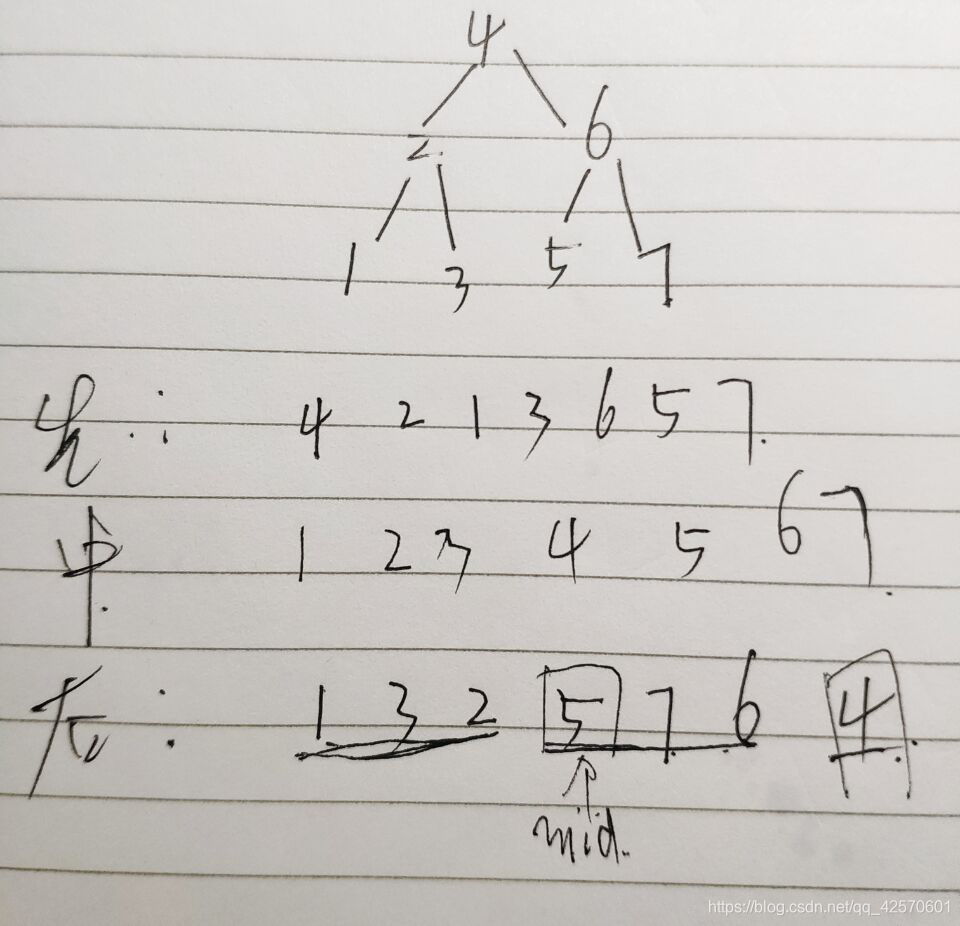 4
2 6
1 3 5 7
先: 4 2 1 3 6 5 7.
中. 1 2 3 4 5 6 7.
后: 1 3 2 5 7 6 4.
mid.
https://blog.csdn.net/qq_42570601